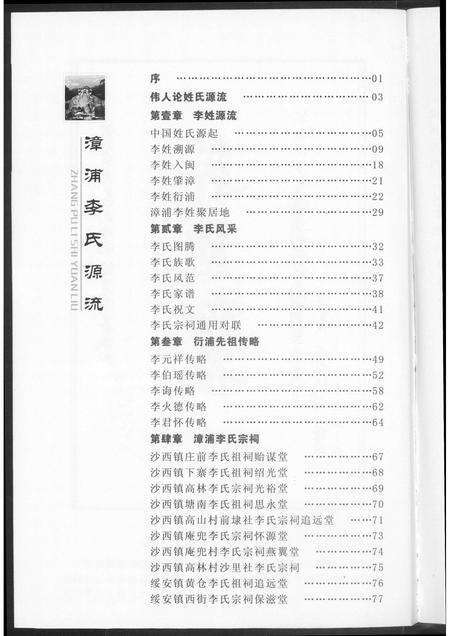 漳浦李氏源流
ZHANG PU LI SHI YUAN LIU
序 …………………………………01
伟人论姓氏源流 ……………………03
第壹章 李姓源流
中国姓氏源起 ………………………05
李姓溯源 ……………………………09
李姓入闽 ……………………………18
李姓肇漳 ……………………………21
李姓衍浦 ……………………………22
漳浦李姓聚居地 ……………………29
第贰章 李氏风采
李氏图腾 ……………………………32
李氏族歌 ……………………………33
李氏风范 ……………………………37
李氏家谱 ……………………………38
李氏祝文 ……………………………41
李氏宗祠通用对联 …………………42
第叁章 衍浦先祖传略
李元祥传略 …………………………49
李伯瑶传略 …………………………52
李诲传略 ……………………………58
李火德传略 …………………………62
李君怀传略 …………………………64
第肆章 漳浦李氏宗祠
沙西镇庄前李氏祖祠贻谋堂 ………67
沙西镇下寨李氏祖祠绍光堂 ………68
沙西镇高林李氏宗祠光裕堂 ………69
沙西镇塘南李氏祖祠思永堂 ………70
沙西镇高山村前埭社李氏宗祠追远堂 ……71
沙西镇庵兜李氏宗祠怀源堂 ………73
沙西镇庵兜村李氏宗祠燕翼堂 ……74
沙西镇高林村沙里社李氏宗祠 ……75
绥安镇黄仓李氏祖祠追远堂 ………76
绥安镇西街李氏宗祠保滋堂 ………77